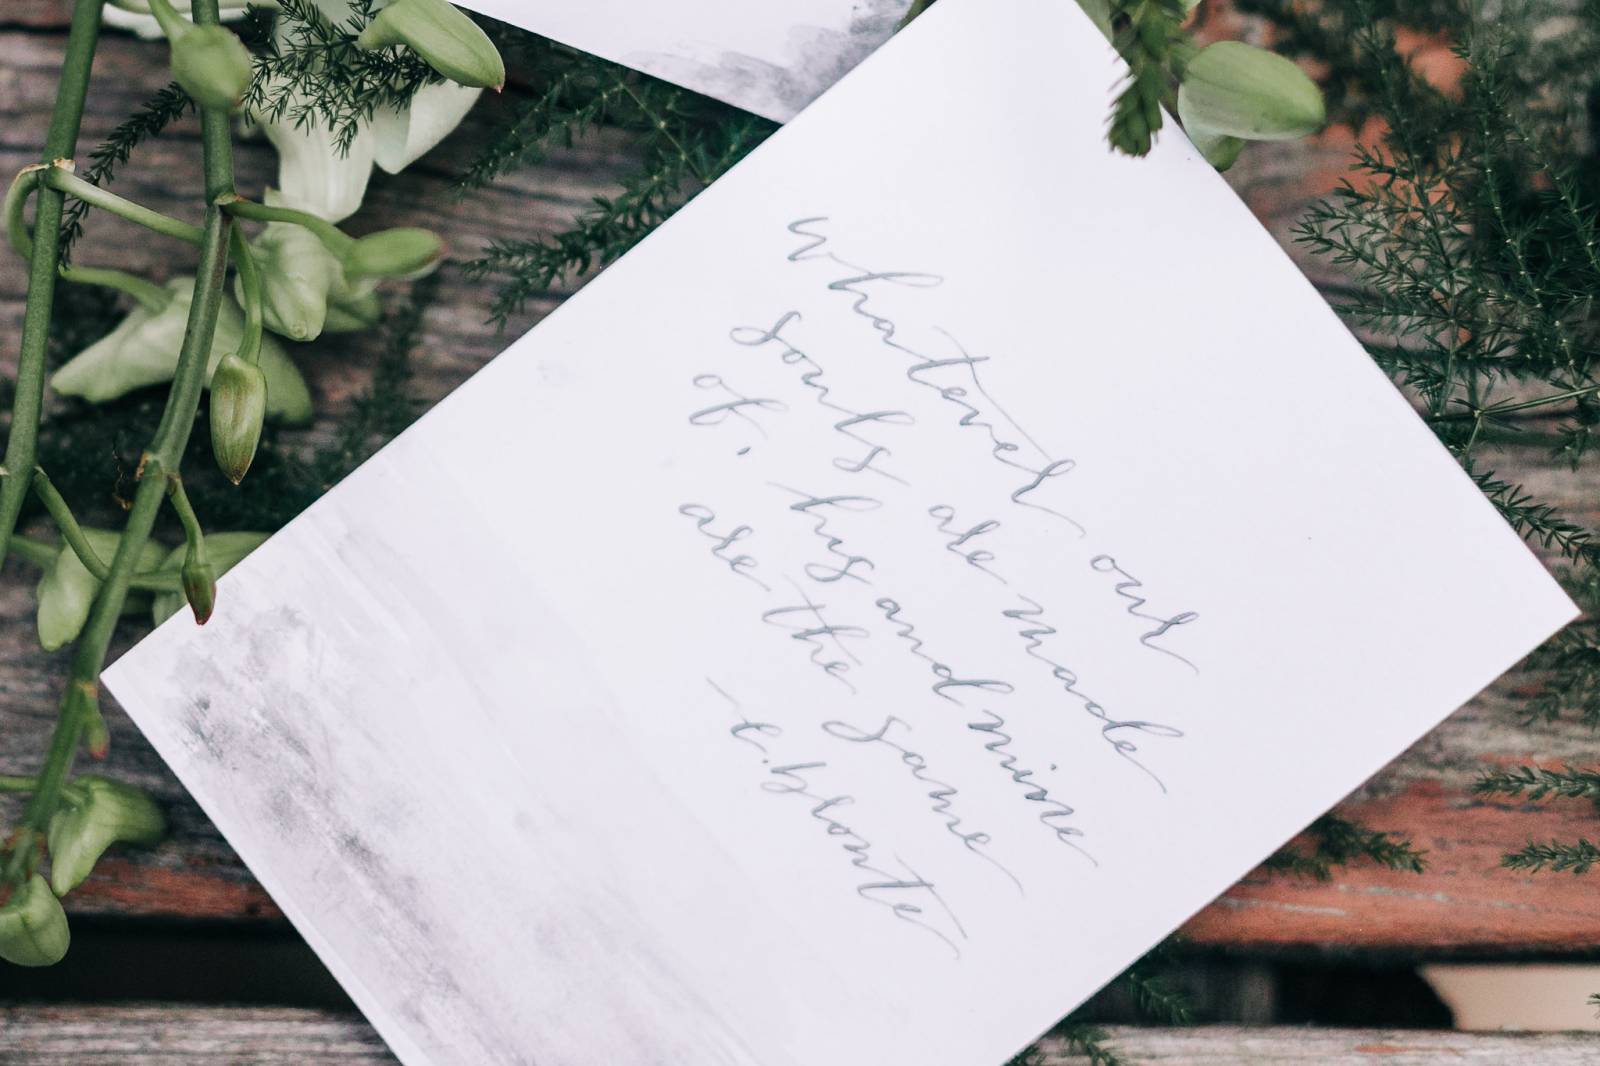 whatever our
souls are made
of, his and mine
are the same
e. bronte